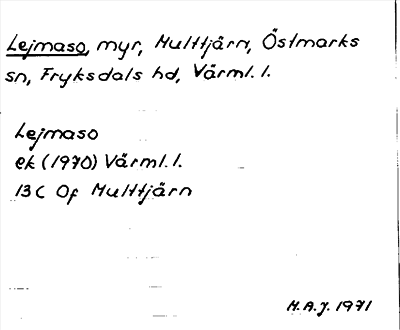 Lejmaso, myr, Multtjärn, Östmarks
sn, Fryksdals hd, Värml. l.
Lejmaso
ek (1970) Värml. l.
13 C Of Multtjärn
M.A.J. 1971